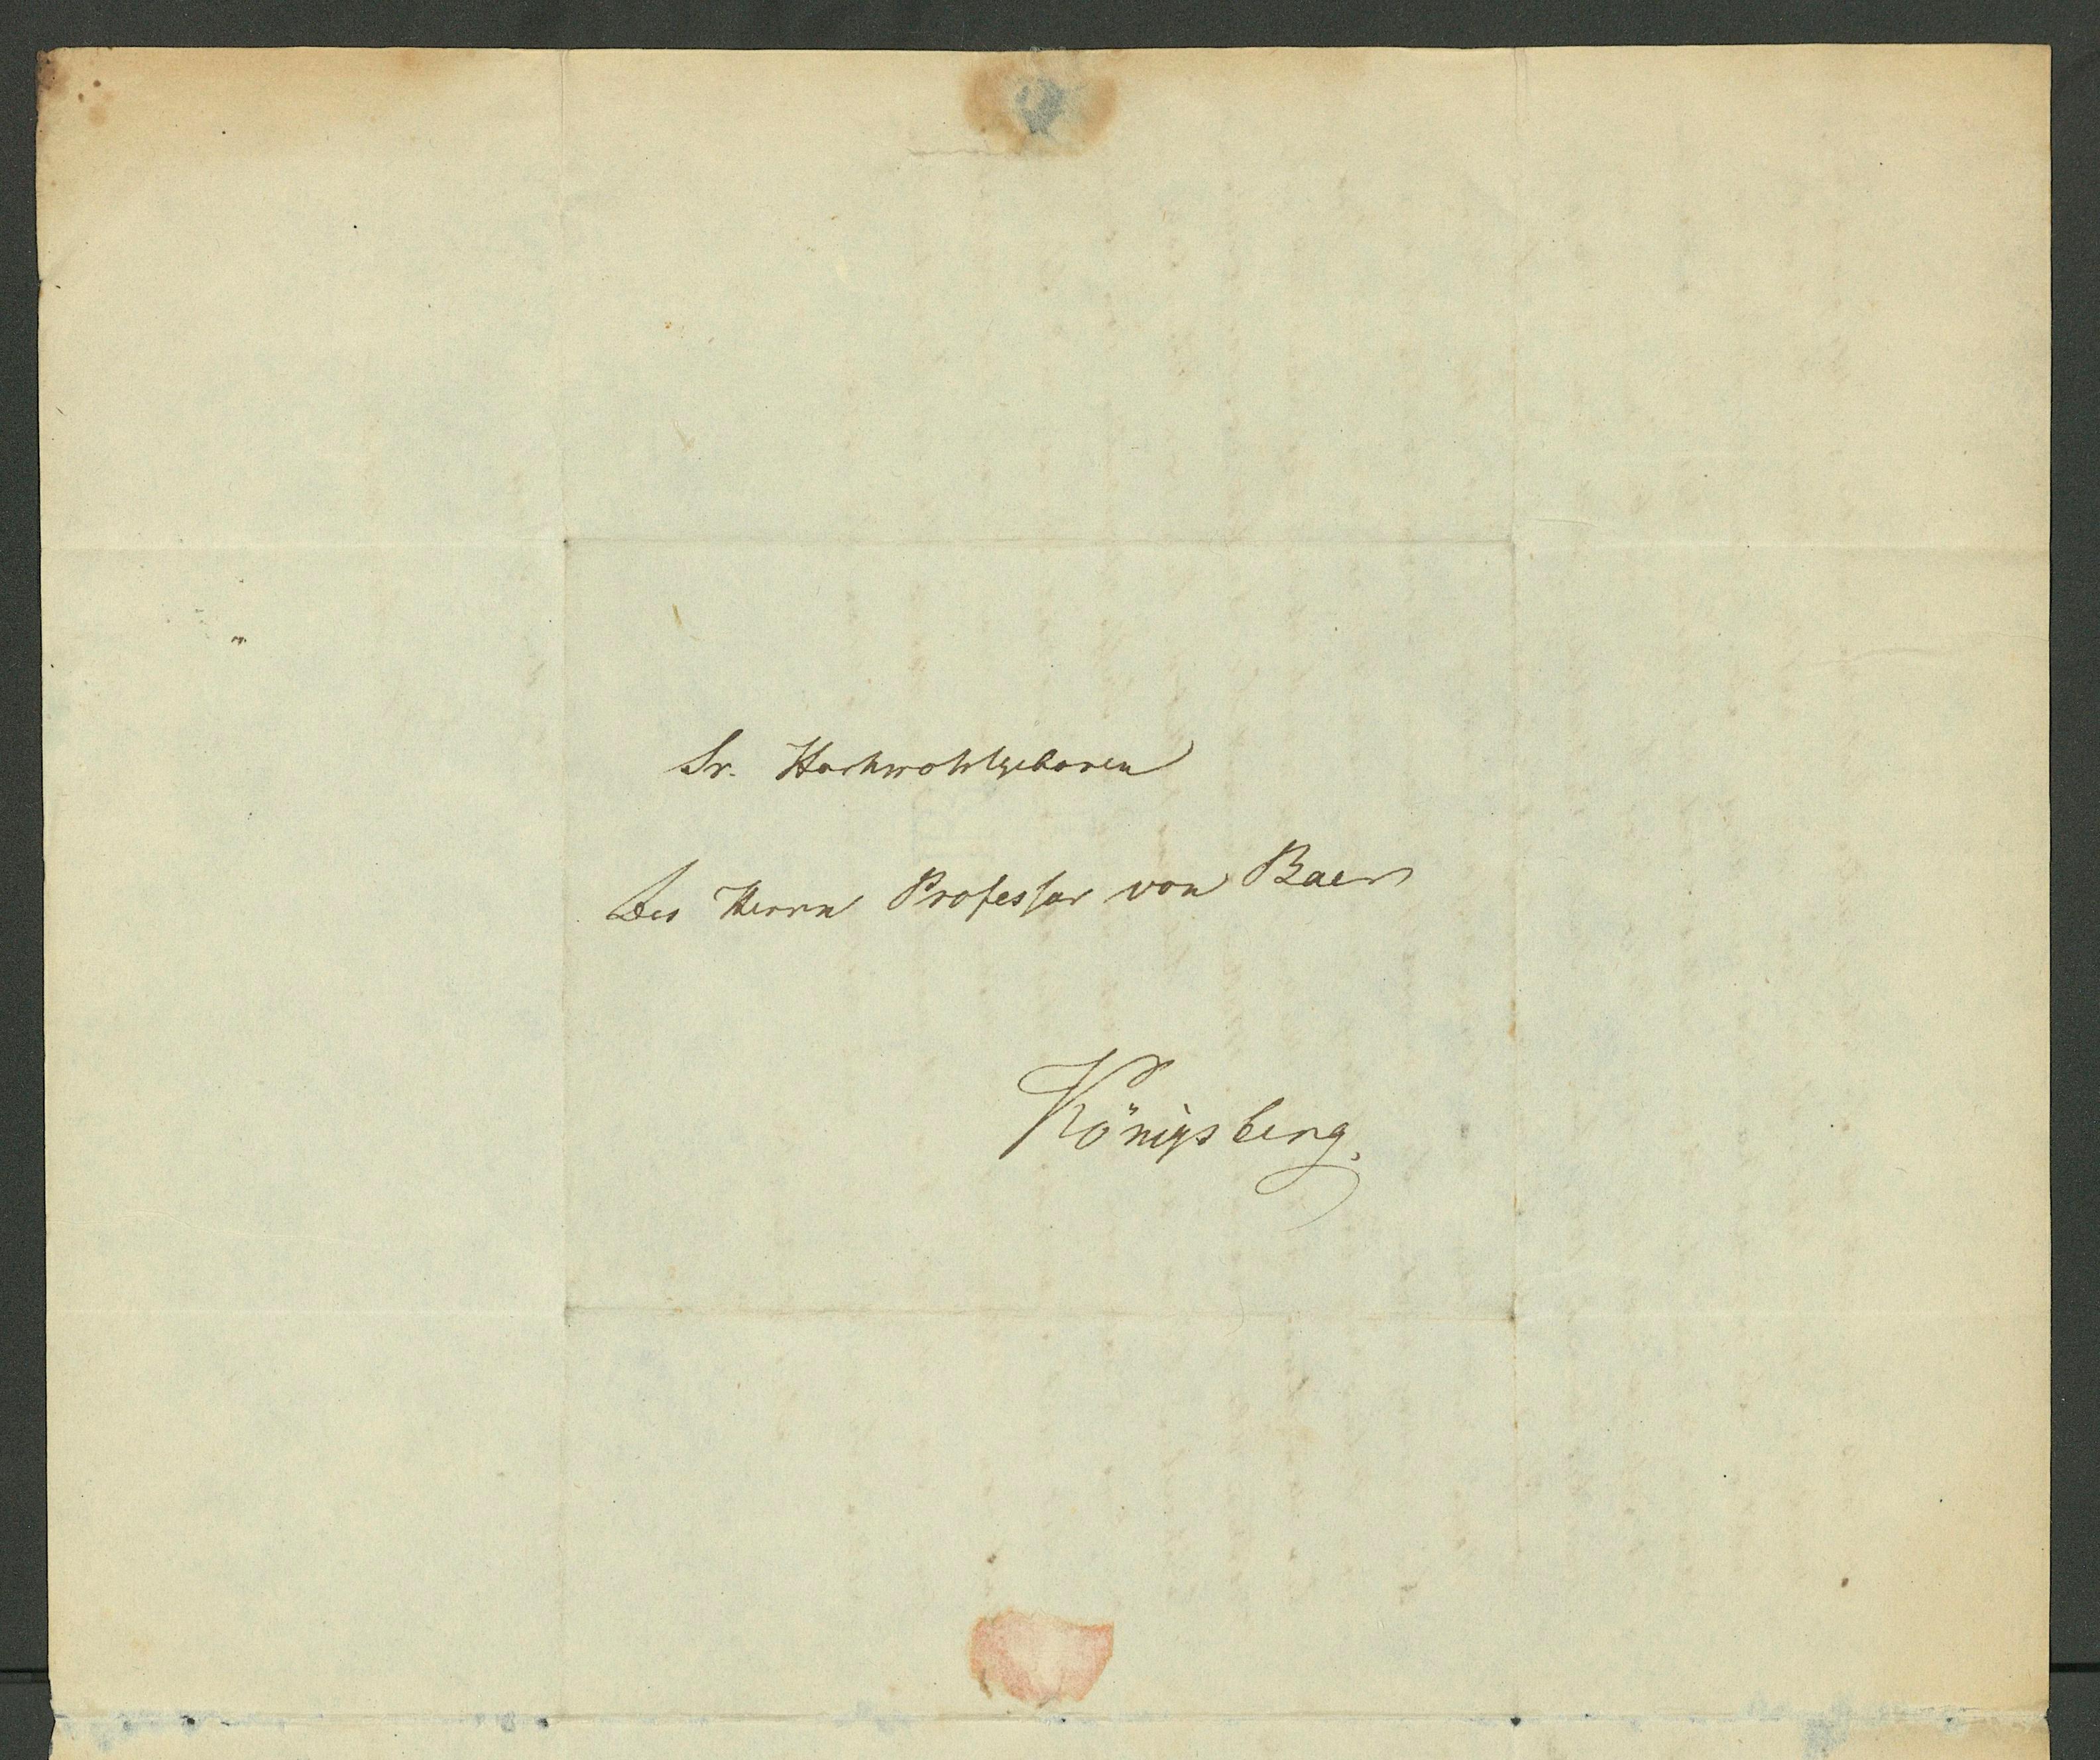 Sr. Hochwohlgeboren
des Herrn Professor von Baer
Königsberg.